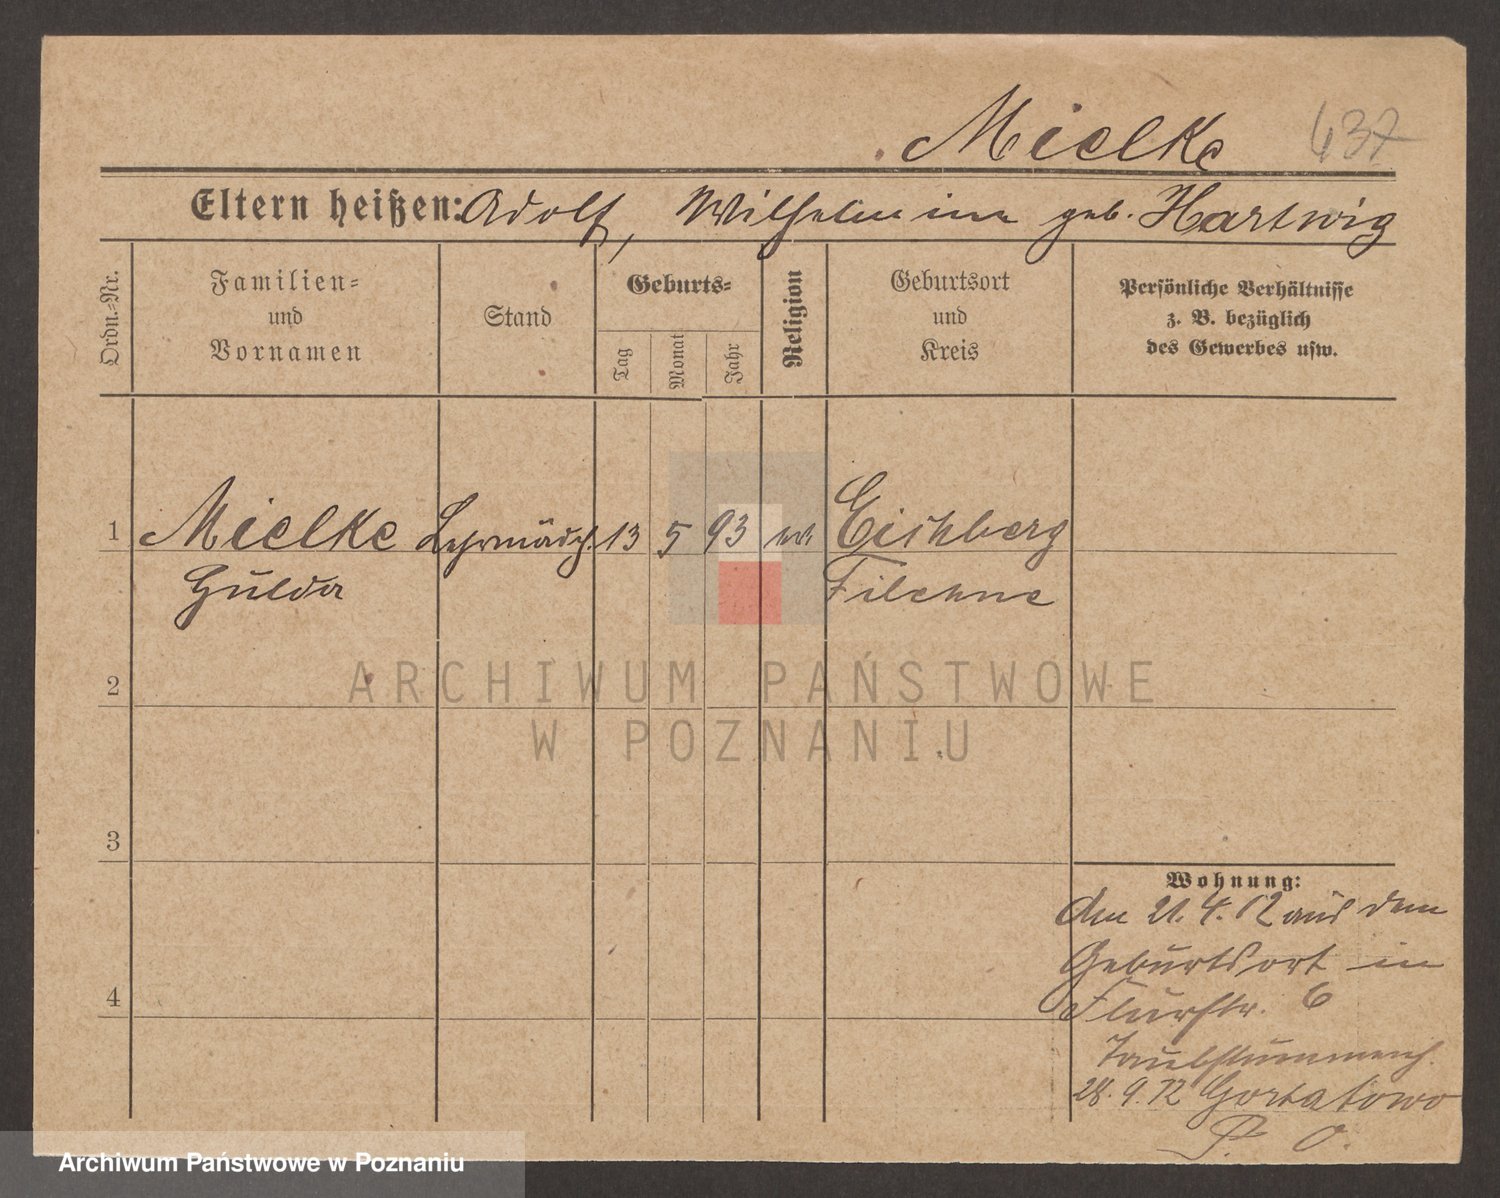 Mielke 437
Eltern heißen: Adolf, Wilhelmine geb. Hartwig
Ordn.-Nr.
Familien-
und
Vornamen
Stand
Geburts-
Tag
Monat
Jahr
Religion
Geburtsort
und
Kreis
Persönliche Verhältnisse
z. B. bezüglich
des Gewerbes usw.
1 Mielke Lehrmädch. 13 5 93 ev. Eichberg
Hulda Filehne
2
3
4
Wohnung:
Am 21. 4. 12 aus dem
Geburtsort in
Flurstr. 6
Taubstummench.
28. 9. 12 Gortatowo
P. O.
ARCHIWUM PAŃSTWOWE
W POZNANIU
Archiwum Państwowe w Poznaniu